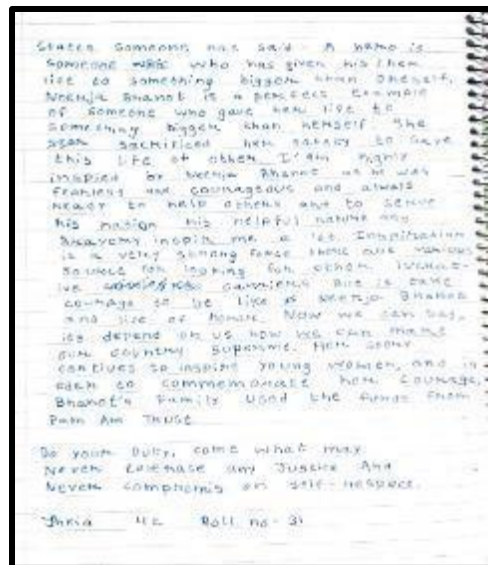 Someone has said A hero is
Someone who has given his her
life to something bigger than Oneself,
Neerja Bhanot is a perfect Example
of Someone who gave her life to
Something bigger than herself She
sacrificed her safety to save
this life of other I'am highly
inspired by Neerja Bhanot as he was
fearless and courageous and always
ready to help others and to serve
his nation his helpful nature any
bravery inspir me a lot Inspiration
is a very strong force there are various
source for looking for other
and is take
courage to be like Neerja Bhanot
and life of honour. Now we can say,
its depend on us how we can make
our country supreme. Her story
contiues to inspire young women, and in
to commemorate her courage,
Bhanot's Family used the funds from
Pam Am Trust
Do your Duty, come what may
Never tolerase any Justice And
Never compromis on self-respect.
4C Roll no - 31